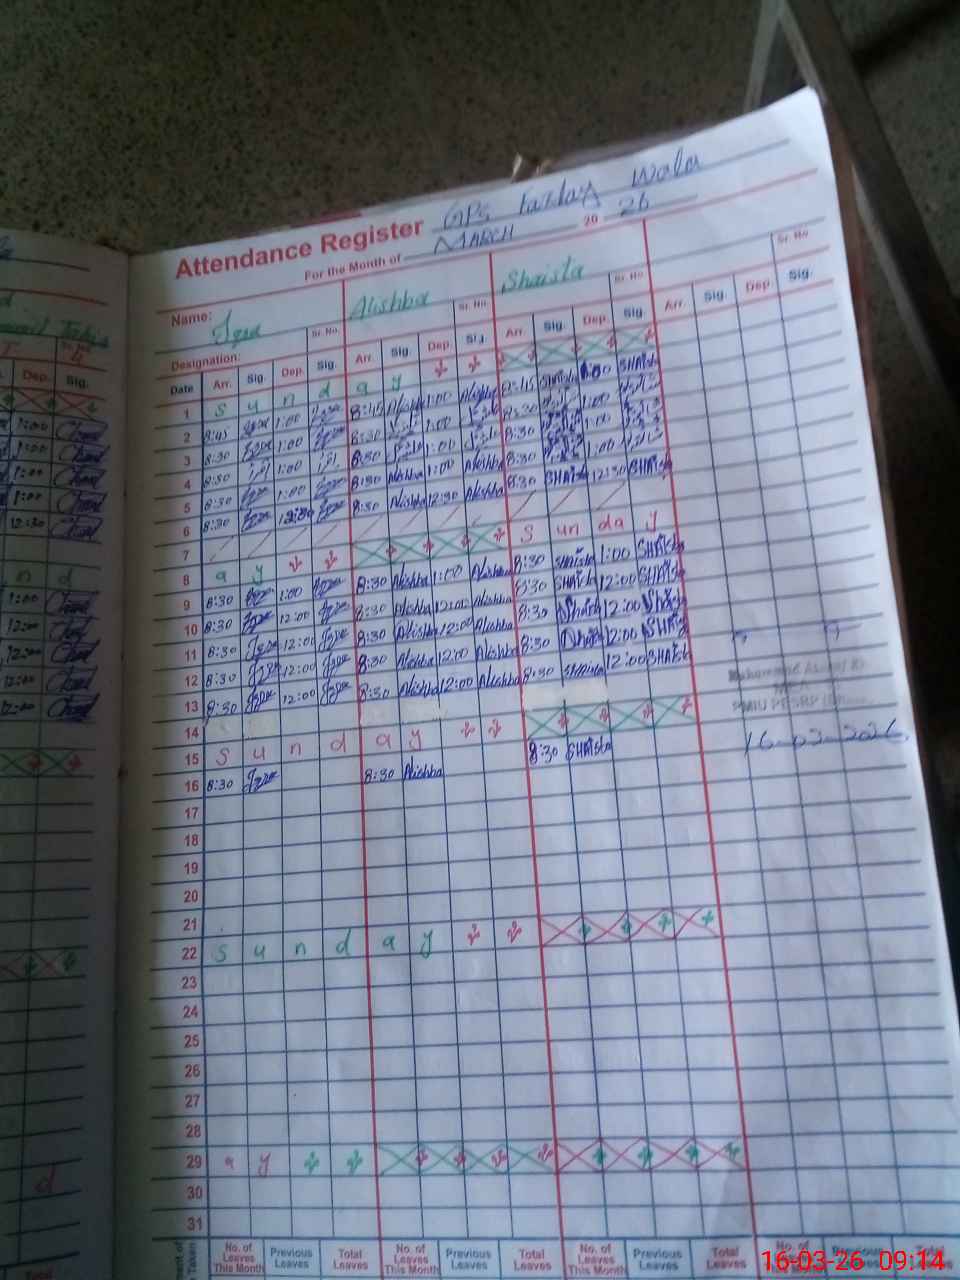 Attendance Register GPS Farday Wala
For the Month of MARCH 20 26
Name: Iqra Alishba Shaista
Sr. No. Sr. No. Sr. No. Sr. No.
Designation:
Date Arr. Sig. Dep. Sig. Arr. Sig. Dep. Sig. Arr. Sig. Dep. Sig. Arr. Sig. Dep. Sig.
1 S u n d a y
2 8:45 Iqra 1:00 Iqra 8:45 Alishba 1:00 Alishba 8:45 SHAista 1:00 SHAista
3 8:30 Iqra 1:00 Iqra 8:30 1:00 8:30 1:00
4 8:30 1:00 8:30 1:00 8:30 1:00
5 8:30 Iqra 1:00 Iqra 8:30 Alishba 1:00 Alishba 8:30 1:00
6 8:30 Iqra 12:30 Iqra 8:30 Alishba 12:30 Alishba 8:30 SHAista 12:30 SHAista
7
8 a y S un da y
9 8:30 Iqra 1:00 Iqra 8:30 Alishba 1:00 Alishba 8:30 SHAista 1:00 SHAista
10 8:30 Iqra 12:00 Iqra 8:30 Alishba 12:00 Alishba 8:30 SHAista 12:00 SHAista
11 8:30 Iqra 12:00 Iqra 8:30 Alishba 12:00 Alishba 8:30 Shaista 12:00 Shaista
12 8:30 Iqra 12:00 Iqra 8:30 Alishba 12:00 Alishba 8:30 Shaista 12:00 SHAista
13 8:30 Iqra 12:00 Iqra 8:30 Alishba 12:00 Alishba 8:30 SHAista 12:00 SHAista
14
15 S u n d a y
16 8:30 Iqra 8:30 Alishba 8:30 SHAista
16-03-2026
17
18
19
20
21
22 S u n d a y
23
24
25
26
27
28
29 a y
30
31
No. of Leaves This Month Previous Leaves Total Leaves No. of Leaves This Month Previous Leaves Total Leaves No. of Leaves This Month Previous Leaves Total Leaves No. of Leaves This Month Previous Leaves Total Leaves
Dep. Sig.
1:00
1:00
1:00
1:00
12:30
n d
1:00
12:00
12:00
12:00
12:00
d
16-03-26 09:14